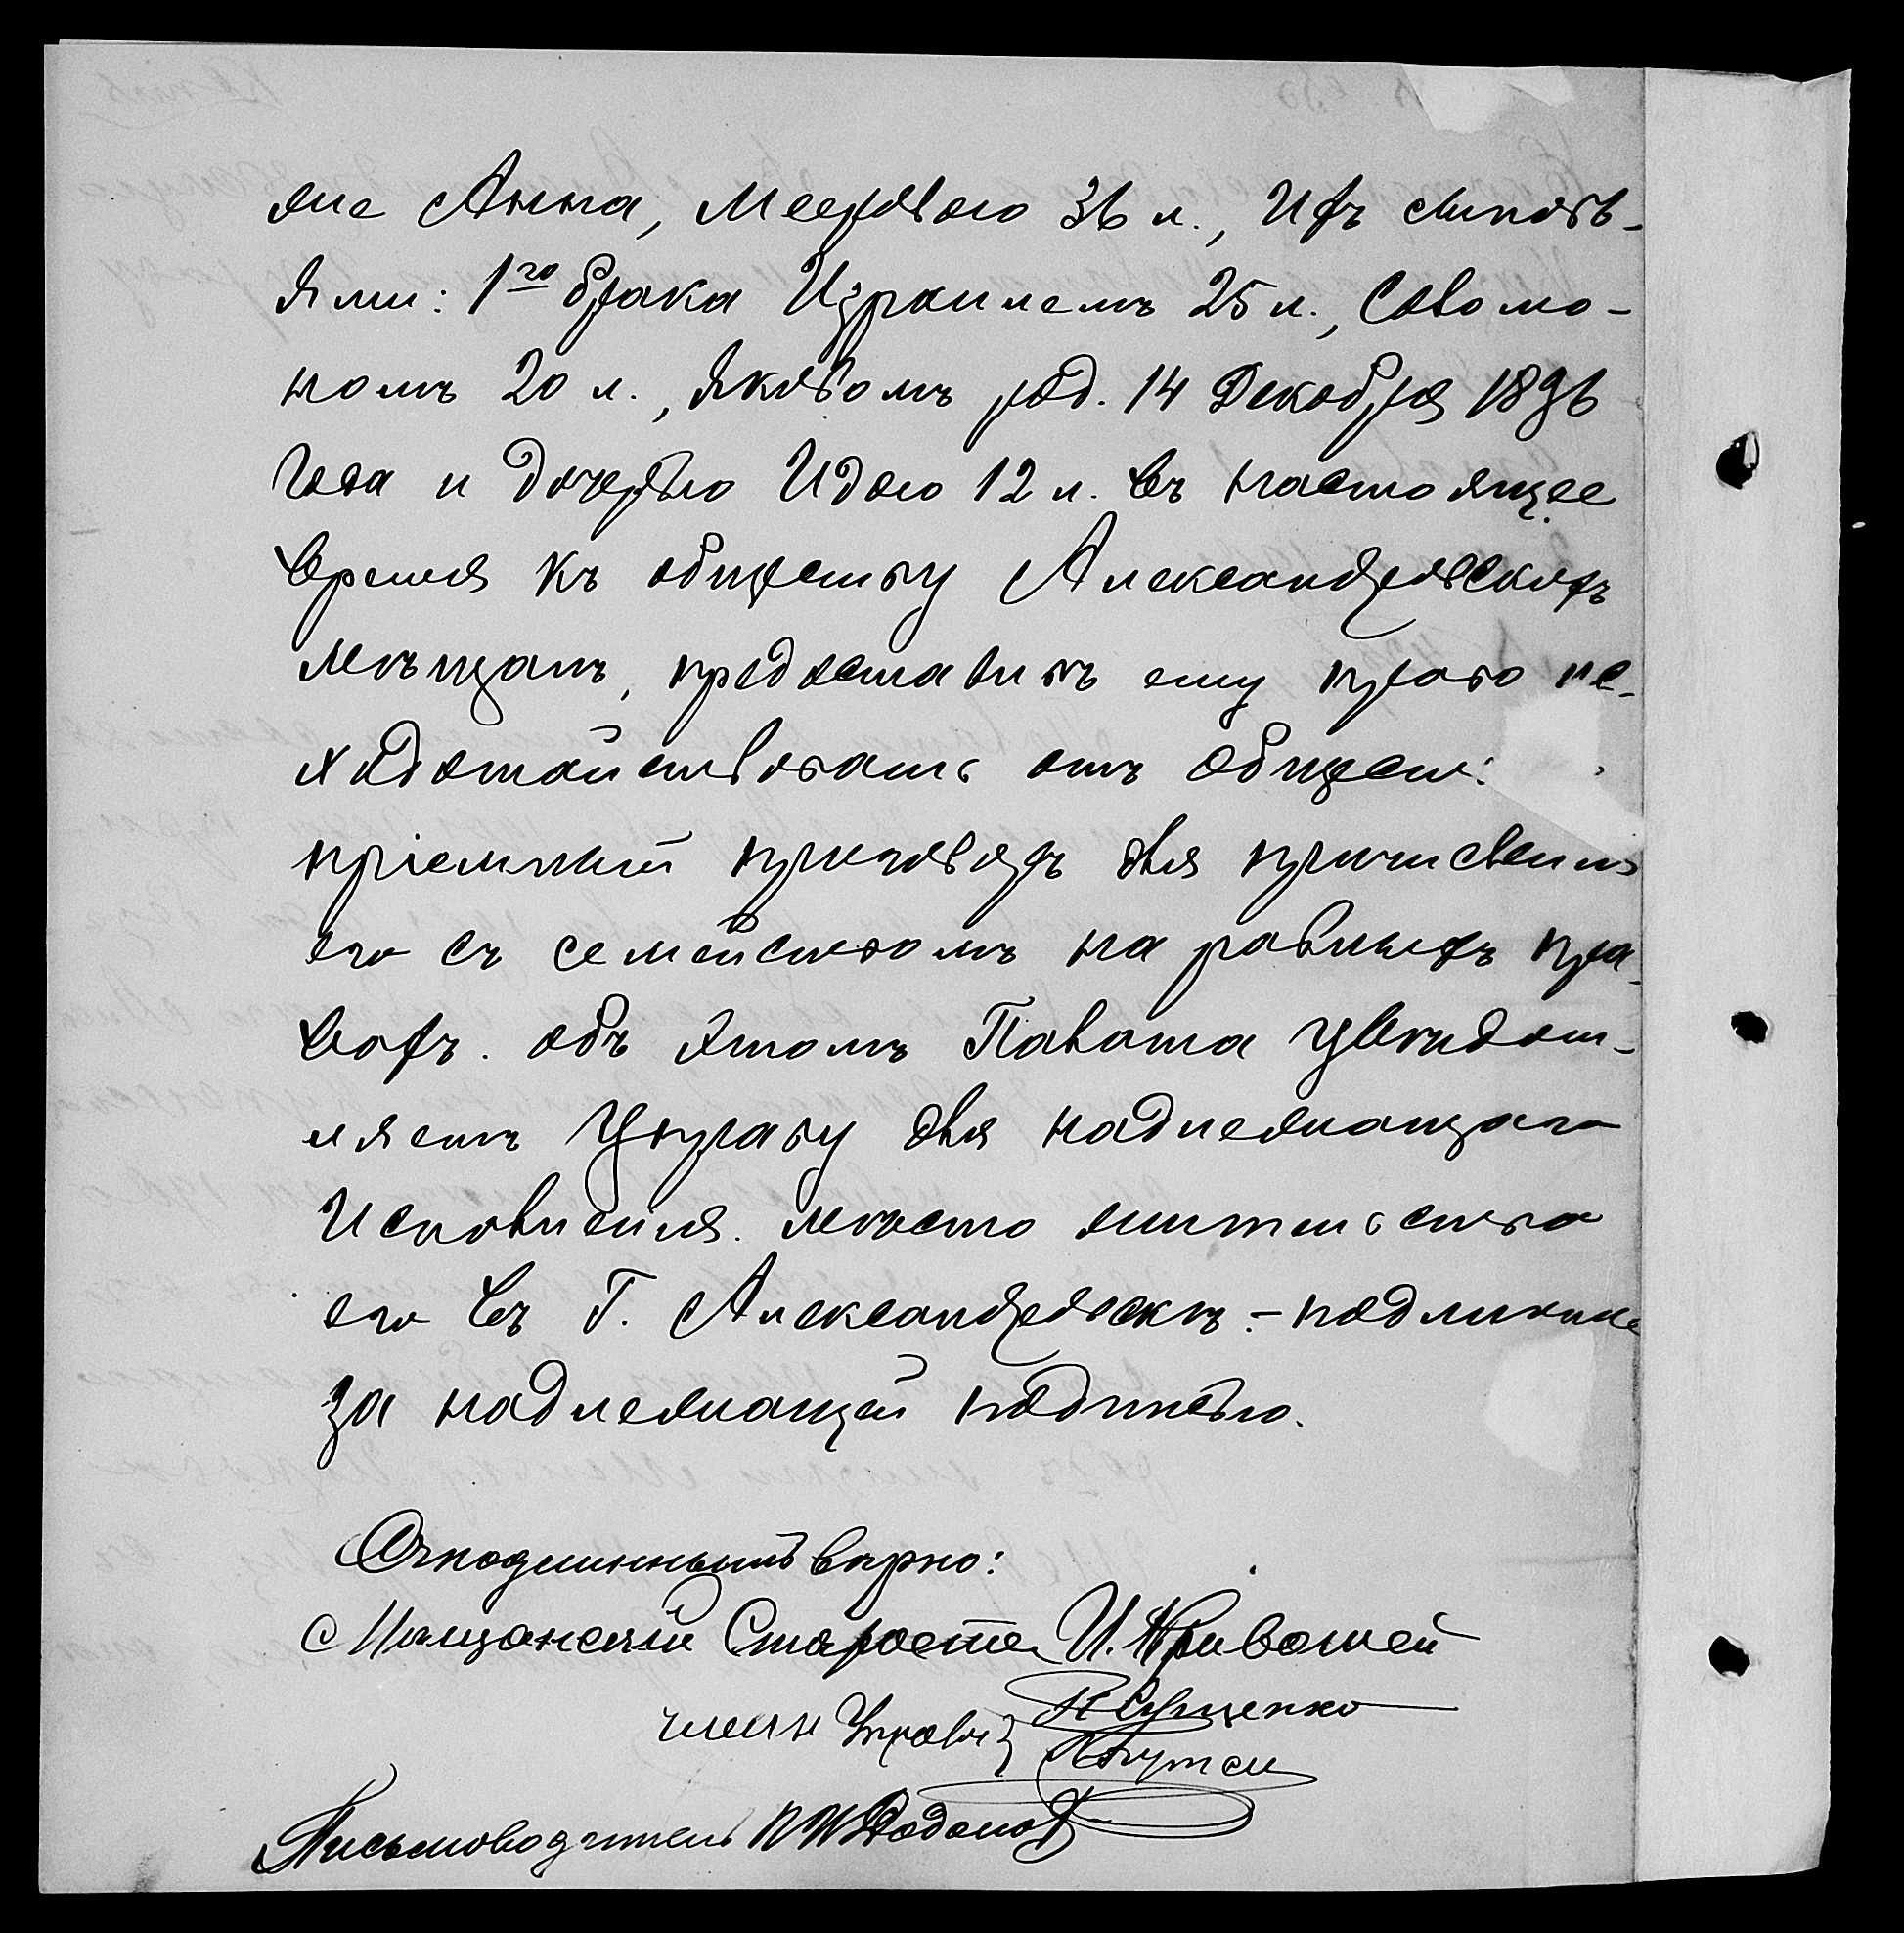 же Анна, Мееровою 36 л., ихъ сыновь-
ями: 1го брака Израилемъ 25 л., Соломо-
номъ 20 л., Яковомъ род. 14 Декабря 1896
года и дочерью Идою 12 л. въ настоящее
время къ обществу Александровскихъ
мѣщанъ, предоставить ему право не
ходотайствовать отъ общест:
пріемный приговоръ для причисленія
его съ семействомъ на равныхъ пра-
вахъ. объ этомъ Палата увѣдом-
ляетъ Управу для надлежащаго
исполненія. мѣсто жительства
его въ Г. Александровскѣ. – подлинное
за надлежащей подписью.
Съ подлиннымъ вѣрно:
Мѣщанскій Староста И. Кривошей
члены Управы Сущенко
Письмоводитель Додонов